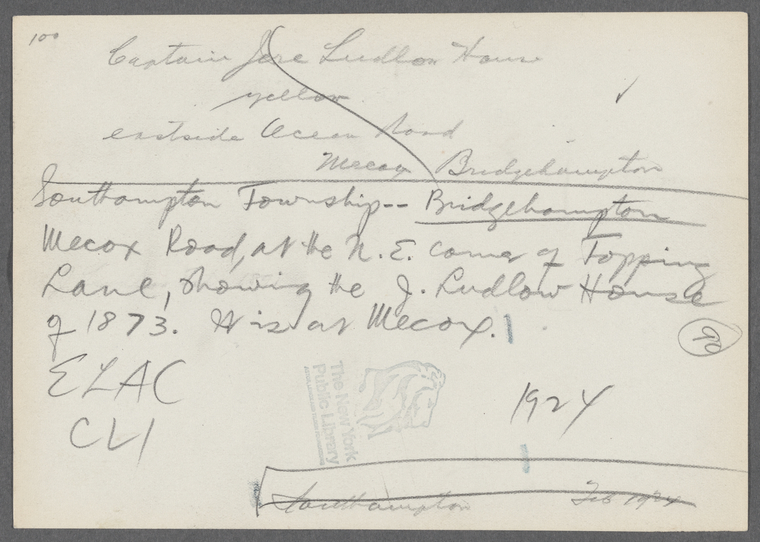 100
Captain Jere Ludlow House
yellow
eastside Ocean Road
Mecox Bridgehampton
Southampton Township-- Bridgehampton
Mecox Road, at the N. E. corner of Topping
Lane, showing the J. Ludlow House
of 1873. It is at Mecox.
ELAC
CLI
1924
The New York
Public Library
Southampton Feb 1924